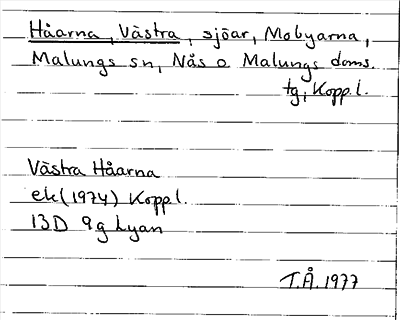 Håarna, Västra, sjöar, Mobyarna,
Malungs sn, Nås o Malungs doms.
tg, Kopp.l.
Västra Håarna
ek (1974) Kopp.l.
13D 9g Lyan
T.Å. 1977